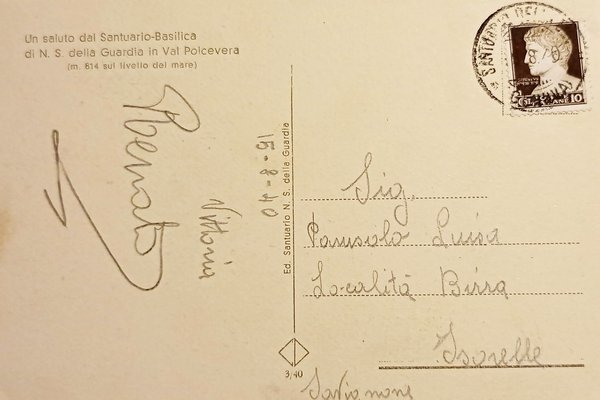 Un saluto dal Santuario-Basilica
di N. S. della Guardia in Val Polcevera
(m. 814 sul livello del mare)
Renato
Vittoria
15-8-40
Ed. Santuario N. S. della Guardia
3/40
SANTUARIO DELL
CENT. 10
Sig.
Luisa
Località Birra
Isorelle
Savignone